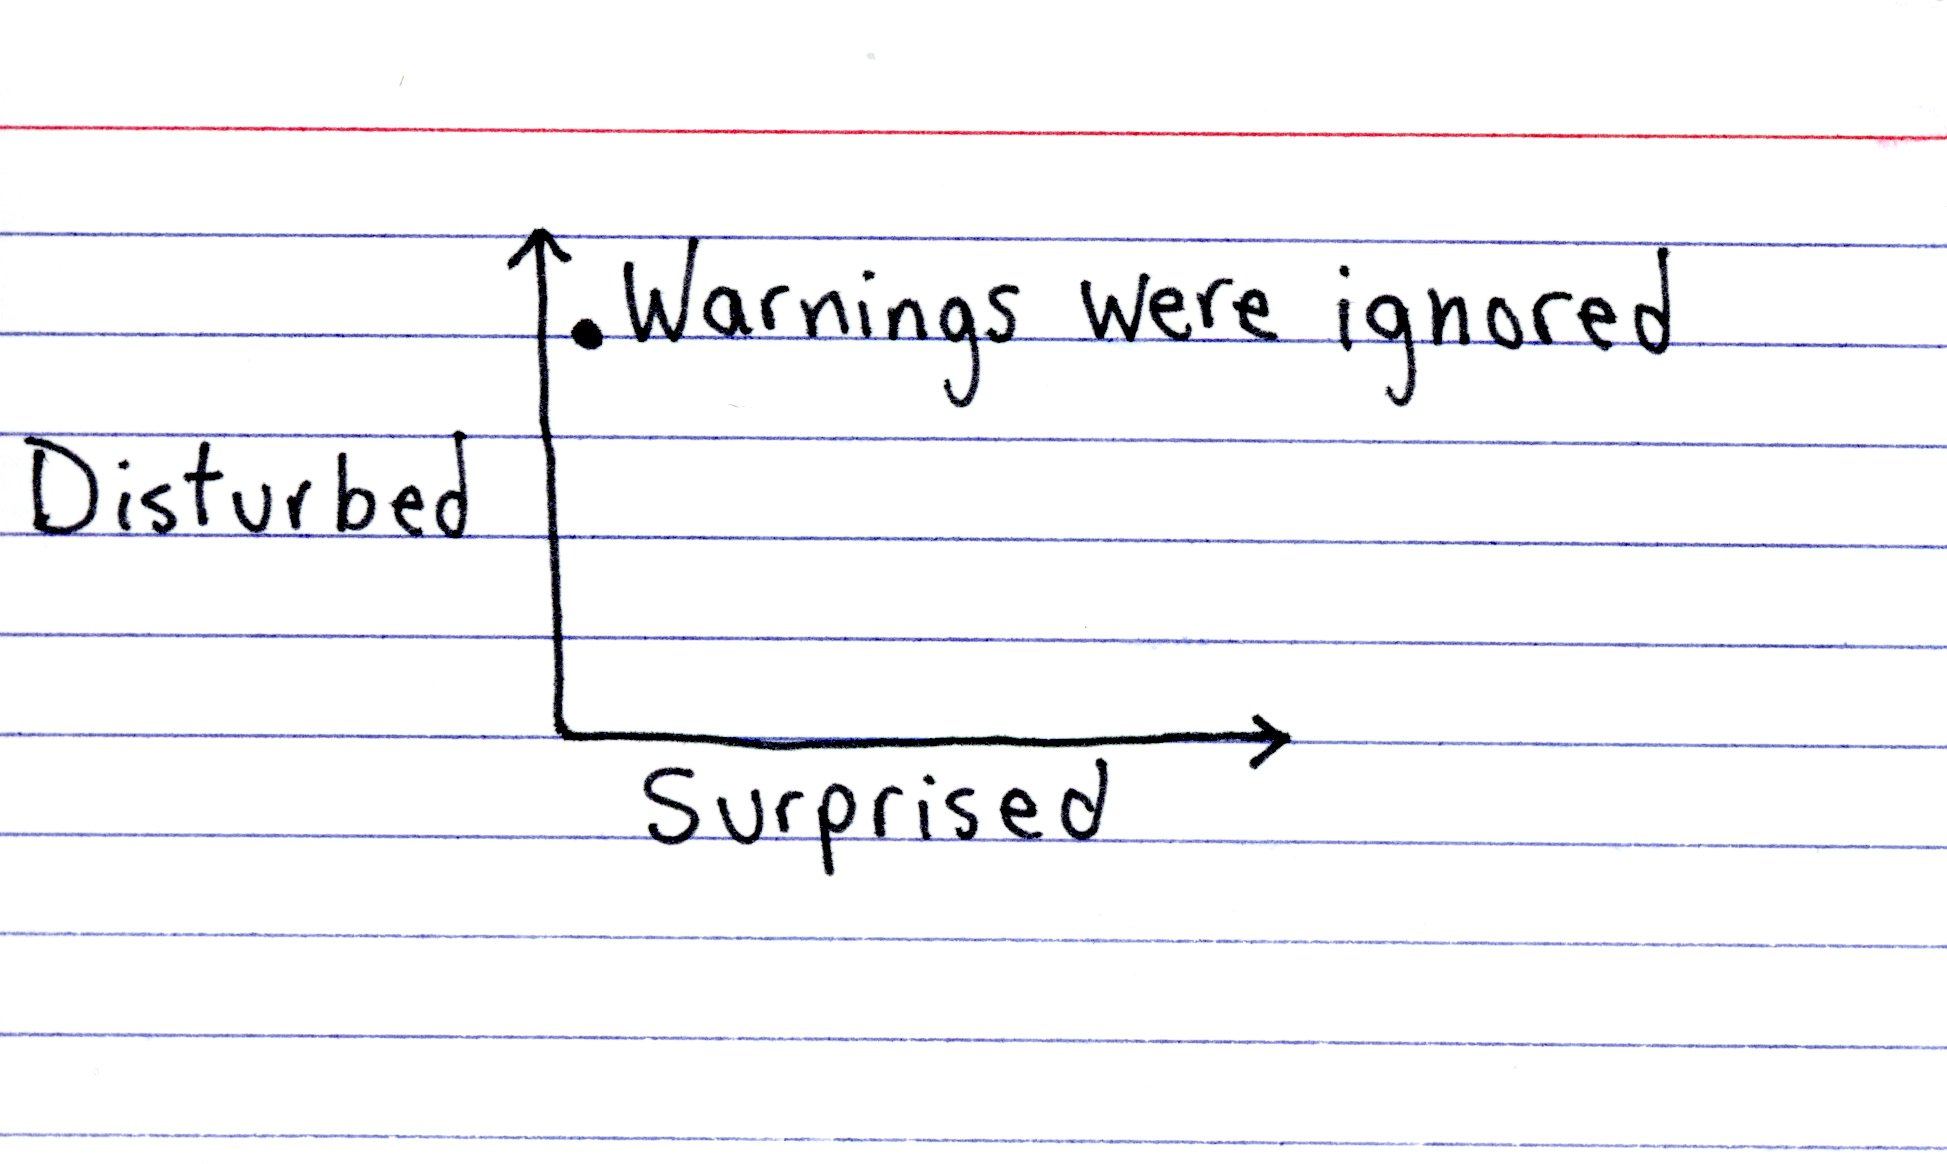 Warnings were ignored
Disturbed
Surprised